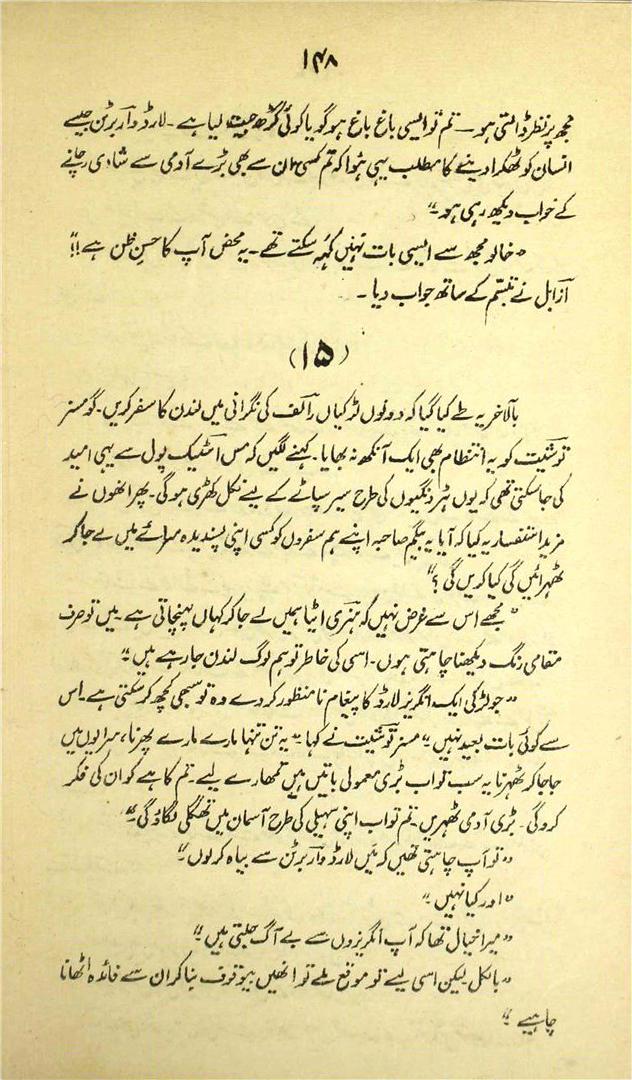 ۱۴۸
مجھ پر نظر ڈالتی ہو — تم تو ایسی باغ باغ ہو گویا کوئی گڑھ جیت لیا ہے ۔ لارڈ وآربرٹن جیسے
انسان کو ٹھکرا دینے کا مطلب یہی ہوا کہ تم کسی ان سے بھی بڑے آدمی سے شادی رچانے
کے خواب دیکھ رہی ہو ۔"
"خالو مجھ سے ایسی بات نہیں کہہ سکتے تھے ۔ یہ محض آپ کا حسنِ ظن ہے !!"
ازآبل نے تبسّم کے ساتھ جواب دیا ۔
(۱۵)
بالآخر یہ طے کیا گیا کہ دونوں لڑکیاں رآلف کی نگرانی میں لندن کا سفر کریں ۔ گو مسز
توشیٹ کو یہ انتظام بھی ایک آنکھ نہ بھایا ۔ کہنے لگیں کہ مس اسٹیک پول سے یہی امید
کی جا سکتی تھی کہ یوں ہڑدنگیوں کی طرح سیر سپاٹے کے لیے نکل کھڑی ہو گی ۔ پھر انھوں نے
مزید استفسار یہ کیا کہ آیا یہ بیگم صاحبہ اپنے ہم سفروں کو کسی اپنی پسندیدہ سرائے میں لے جا کر
ٹھہرائیں گی کیا کریں گی ؟"
"مجھے اس سے غرض نہیں کہ ہنری اٹیا ہمیں لے جا کر کہاں پہنچاتی ہے ۔ میں تو صرف
مقامی رنگ دیکھنا چاہتی ہوں ۔ اسی کی خاطر تو ہم لوگ لندن جا رہے ہیں ۔"
"جو لڑکی ایک انگریز لارڈ کا پیغام نامنظور کر دے وہ تو سبھی کچھ کر سکتی ہے ۔ اس
سے کوئی بات بعید نہیں ۔" مسز توشیٹ نے کہا ۔ "یہ تن تنہا مارے مارے پھرنا ، سرایوں میں
جا جا کر ٹھہرنا یہ سب تو اب بڑی معمولی باتیں ہیں تمھارے لیے ۔ تم کاہے کو ان کی فکر
کرو گی ۔ بڑی آدمی ٹھہریں ۔ تم تو اب اپنی سہیلی کی طرح آسمان میں تھگلی لگاؤ گی ۔"
"تو آپ چاہتی تھیں کہ میں لارڈ وآربرٹن سے بیاہ کر لوں ۔"
"اور کیا نہیں ۔"
"میرا خیال تھا کہ آپ انگریزوں سے بے آگ جلتی ہیں ۔"
"بالکل ۔ لیکن اسی لیے تو موقع ملے تو انھیں بیوقوف بنا کر ان سے فائدہ اٹھانا
چاہیے ۔"